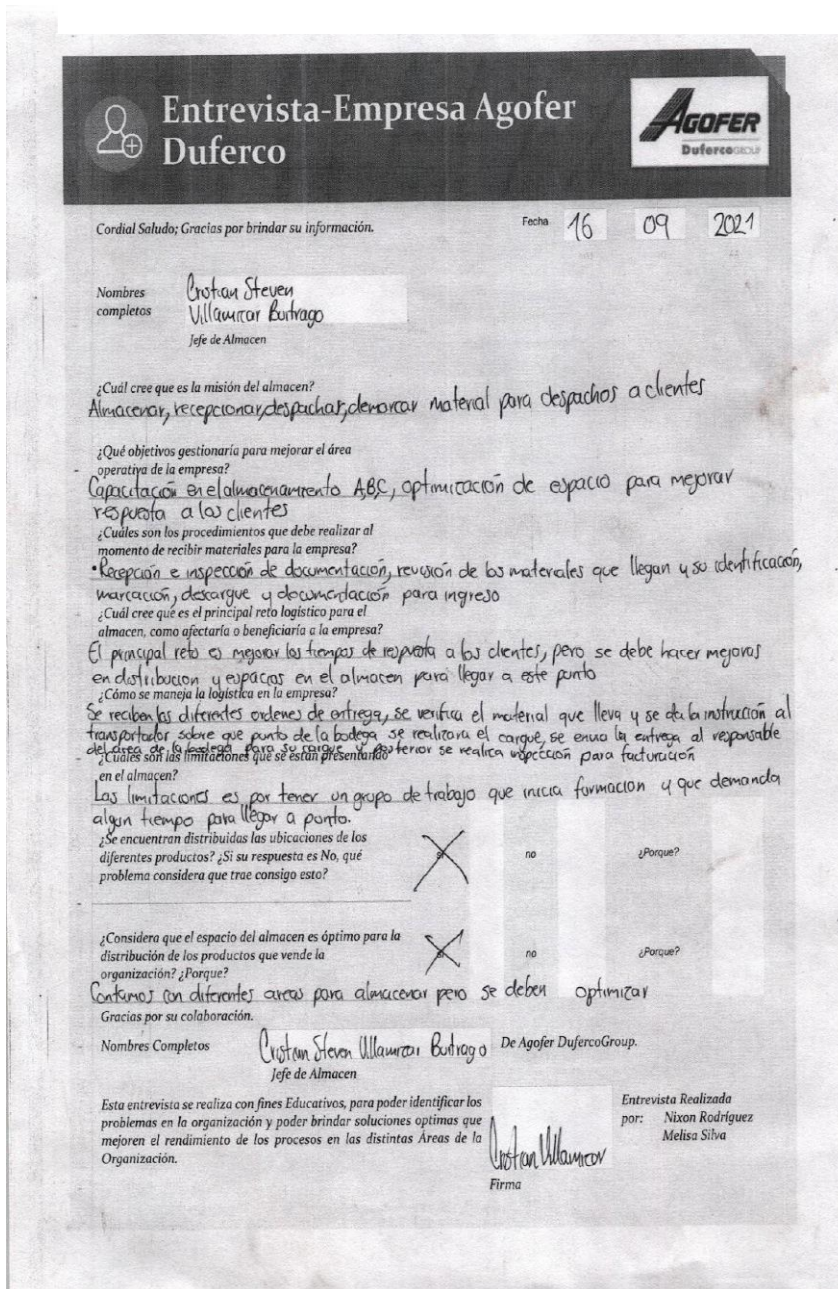 Entrevista-Empresa Agofer
Duferco
AGOFER
DufercoGROUP
Cordial Saludo; Gracias por brindar su información.
Fecha 16 09 2021
Nombres Cristian Steven
completos Villamizar Buitrago
Jefe de Almacen
¿Cuál cree que es la misión del almacen?
Almacenar, recepcionar, despachar, demarcar material para despachos a clientes
¿Qué objetivos gestionaría para mejorar el área
operativa de la empresa?
Capacitación en el almacenamiento A,B,C, optimización de espacio para mejorar
respuesta a los clientes
¿Cuáles son los procedimientos que debe realizar al
momento de recibir materiales para la empresa?
•Recepción e inspección de documentación, revisión de los materiales que llegan y su identificación,
marcación, descargue y documentación para ingreso
¿Cuál cree que es el principal reto logístico para el
almacen, como afectaría o beneficiaría a la empresa?
El principal reto es mejorar los tiempos de respuesta a los clientes, pero se debe hacer mejoras
en distribucion y espacios en el almacen para llegar a este punto
¿Cómo se maneja la logística en la empresa?
Se reciben las diferentes ordenes de entrega, se verifica el material que lleva y se da la instrucción al
transportador sobre que punto de la bodega se realizara el cargue, se envia la entrega al responsable
del área de la bodega para su cargue y posterior se realiza inspección para facturación
¿Cuáles son las limitaciones que se están presentando
en el almacen?
Las limitaciones es por tener un grupo de trabajo que inicia formacion y que demanda
algun tiempo para llegar a punto.
¿Se encuentran distribuidas las ubicaciones de los
diferentes productos? ¿Si su respuesta es No, qué
problema considera que trae consigo esto?
si no ¿Porque?
¿Considera que el espacio del almacen es óptimo para la
distribución de los productos que vende la
organización? ¿Porque?
si no ¿Porque?
Contamos con diferentes areas para almacenar pero se deben optimizar
Gracias por su colaboración.
Nombres Completos Cristian Steven Villamizar Buitrago De Agofer DufercoGroup.
Jefe de Almacen
Esta entrevista se realiza con fines Educativos, para poder identificar los
problemas en la organización y poder brindar soluciones optimas que
mejoren el rendimiento de los procesos en las distintas Áreas de la
Organización.
Cristian Villamizar
Firma
Entrevista Realizada
por: Nixon Rodríguez
Melisa Silva